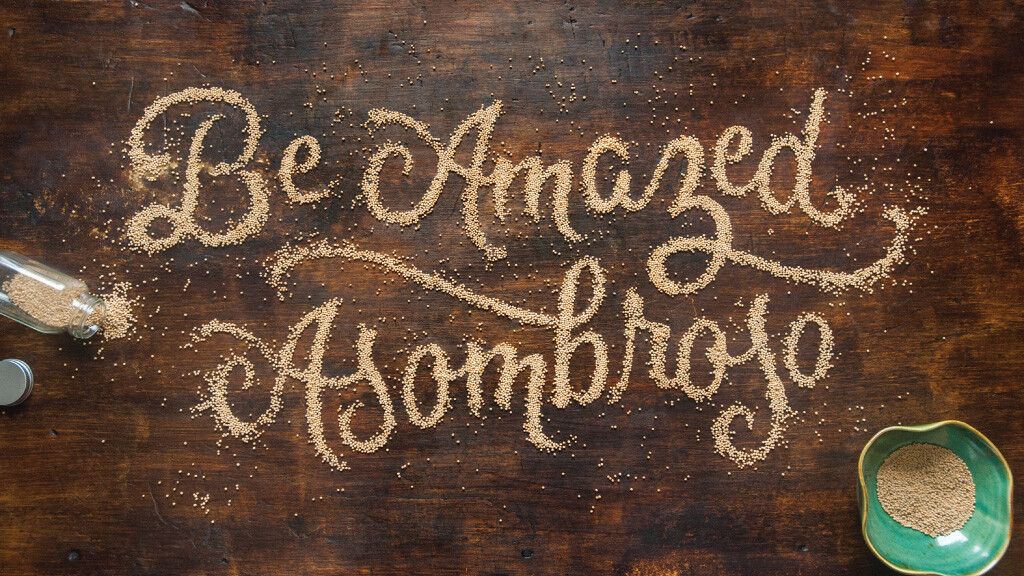 Be Amazed
Asombroso